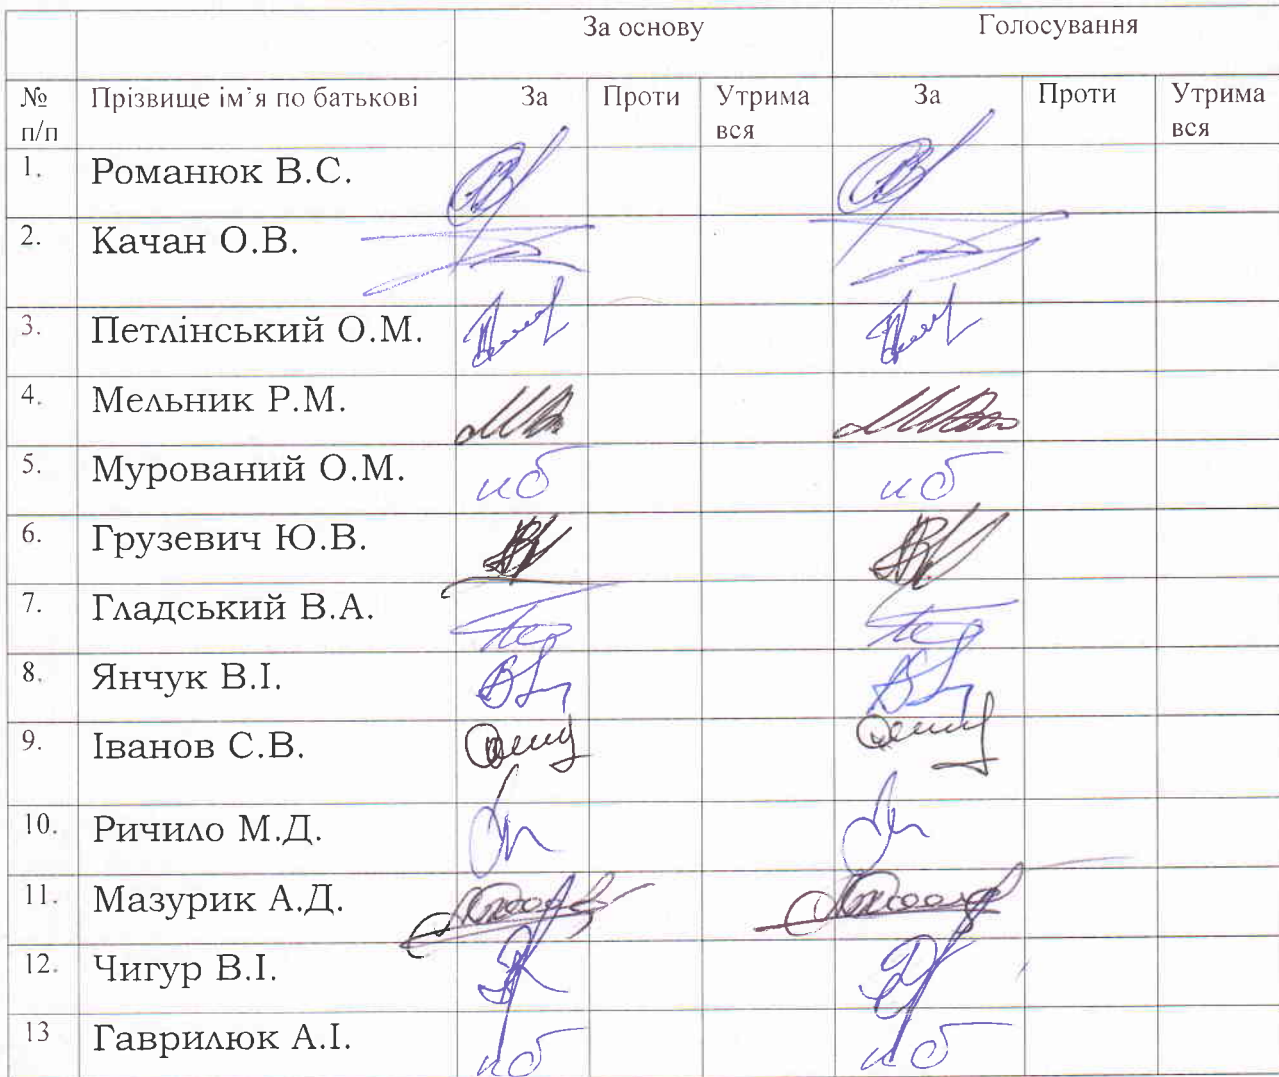 За основу Голосування
№ п/п Прізвище ім'я по батькові За Проти Утрима вся За Проти Утрима вся
1. Романюк В.С.
2. Качан О.В.
3. Петлінський О.М.
4. Мельник Р.М.
5. Мурований О.М. нб нб
6. Грузевич Ю.В.
7. Гладський В.А.
8. Янчук В.І.
9. Іванов С.В.
10. Ричило М.Д.
11. Мазурик А.Д.
12. Чигур В.І.
13 Гаврилюк А.І. нб нб